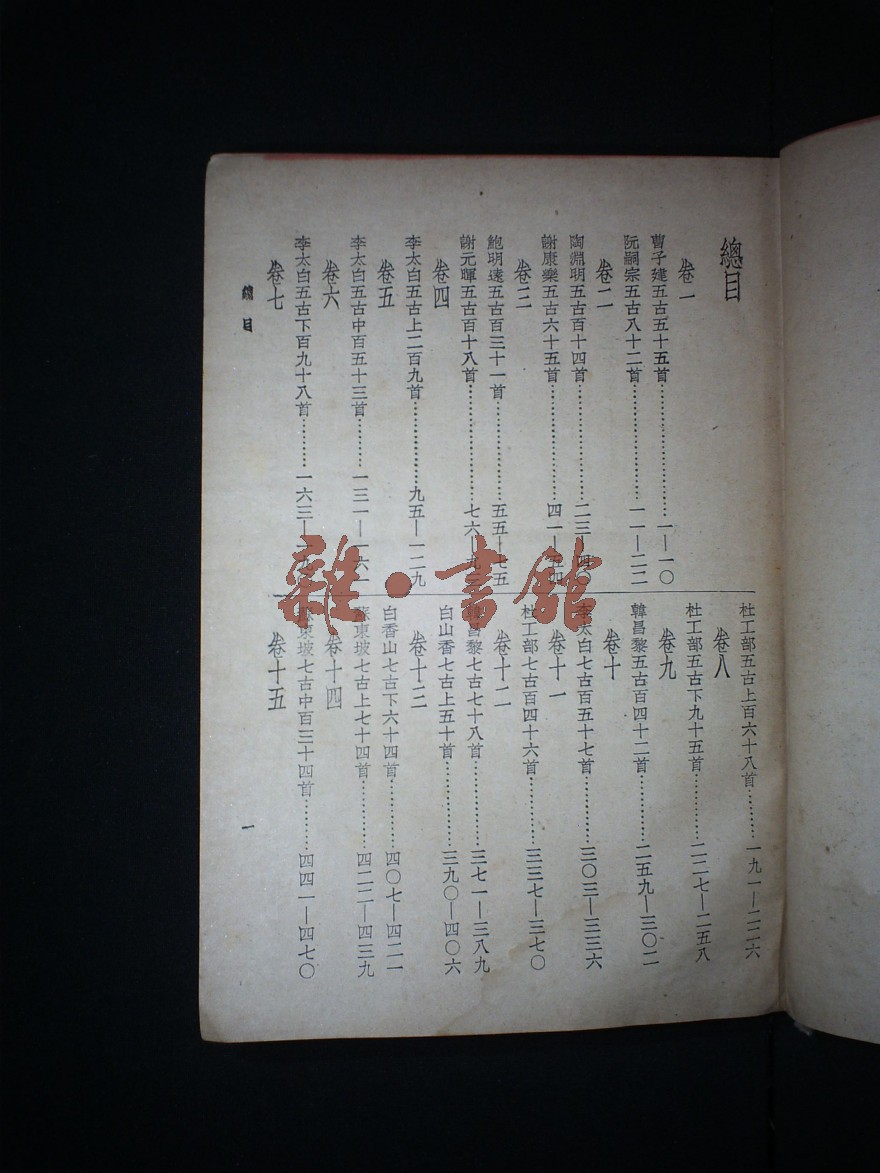 總目
卷一
曹子建五古五十五首…………一—一〇
阮嗣宗五古八十二首…………一一—二二
卷二
陶淵明五古百十四首…………二三—四〇
謝康樂五古六十五首…………四一—五四
卷三
鮑明遠五古百三十一首…………五五—七五
謝元暉五古百十八首…………七六—
卷四
李太白五古上二百九首…………九五—一二九
卷五
李太白五古中百五十三首…………一三一—一六一
卷六
李太白五古下百九十八首…………一六三—
卷七
杜工部五古上百六十八首…………一九一—二二六
卷八
杜工部五古下九十五首…………二二七—二五八
卷九
韓昌黎五古百四十二首…………二五九—三〇二
卷十
李太白七古百五十七首…………三〇三—三三六
卷十一
杜工部七古百四十六首…………三三七—三七〇
卷十二
韓昌黎七古七十八首…………三七一—三八九
白山香七古上五十首…………三九〇—四〇六
卷十三
白香山七古下六十四首…………四〇七—四二一
蘇東坡七古上七十四首…………四二二—四三九
卷十四
蘇東坡七古中百三十四首…………四四一—四七〇
卷十五
總目
一
雜·書館